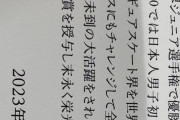 ジュニア選手権で優勝
0では日本人男子初
ギュアスケート界を世界
スにもチャレンジして全
未到の大活躍をされ
賞を授与し末永く栄光
2023年